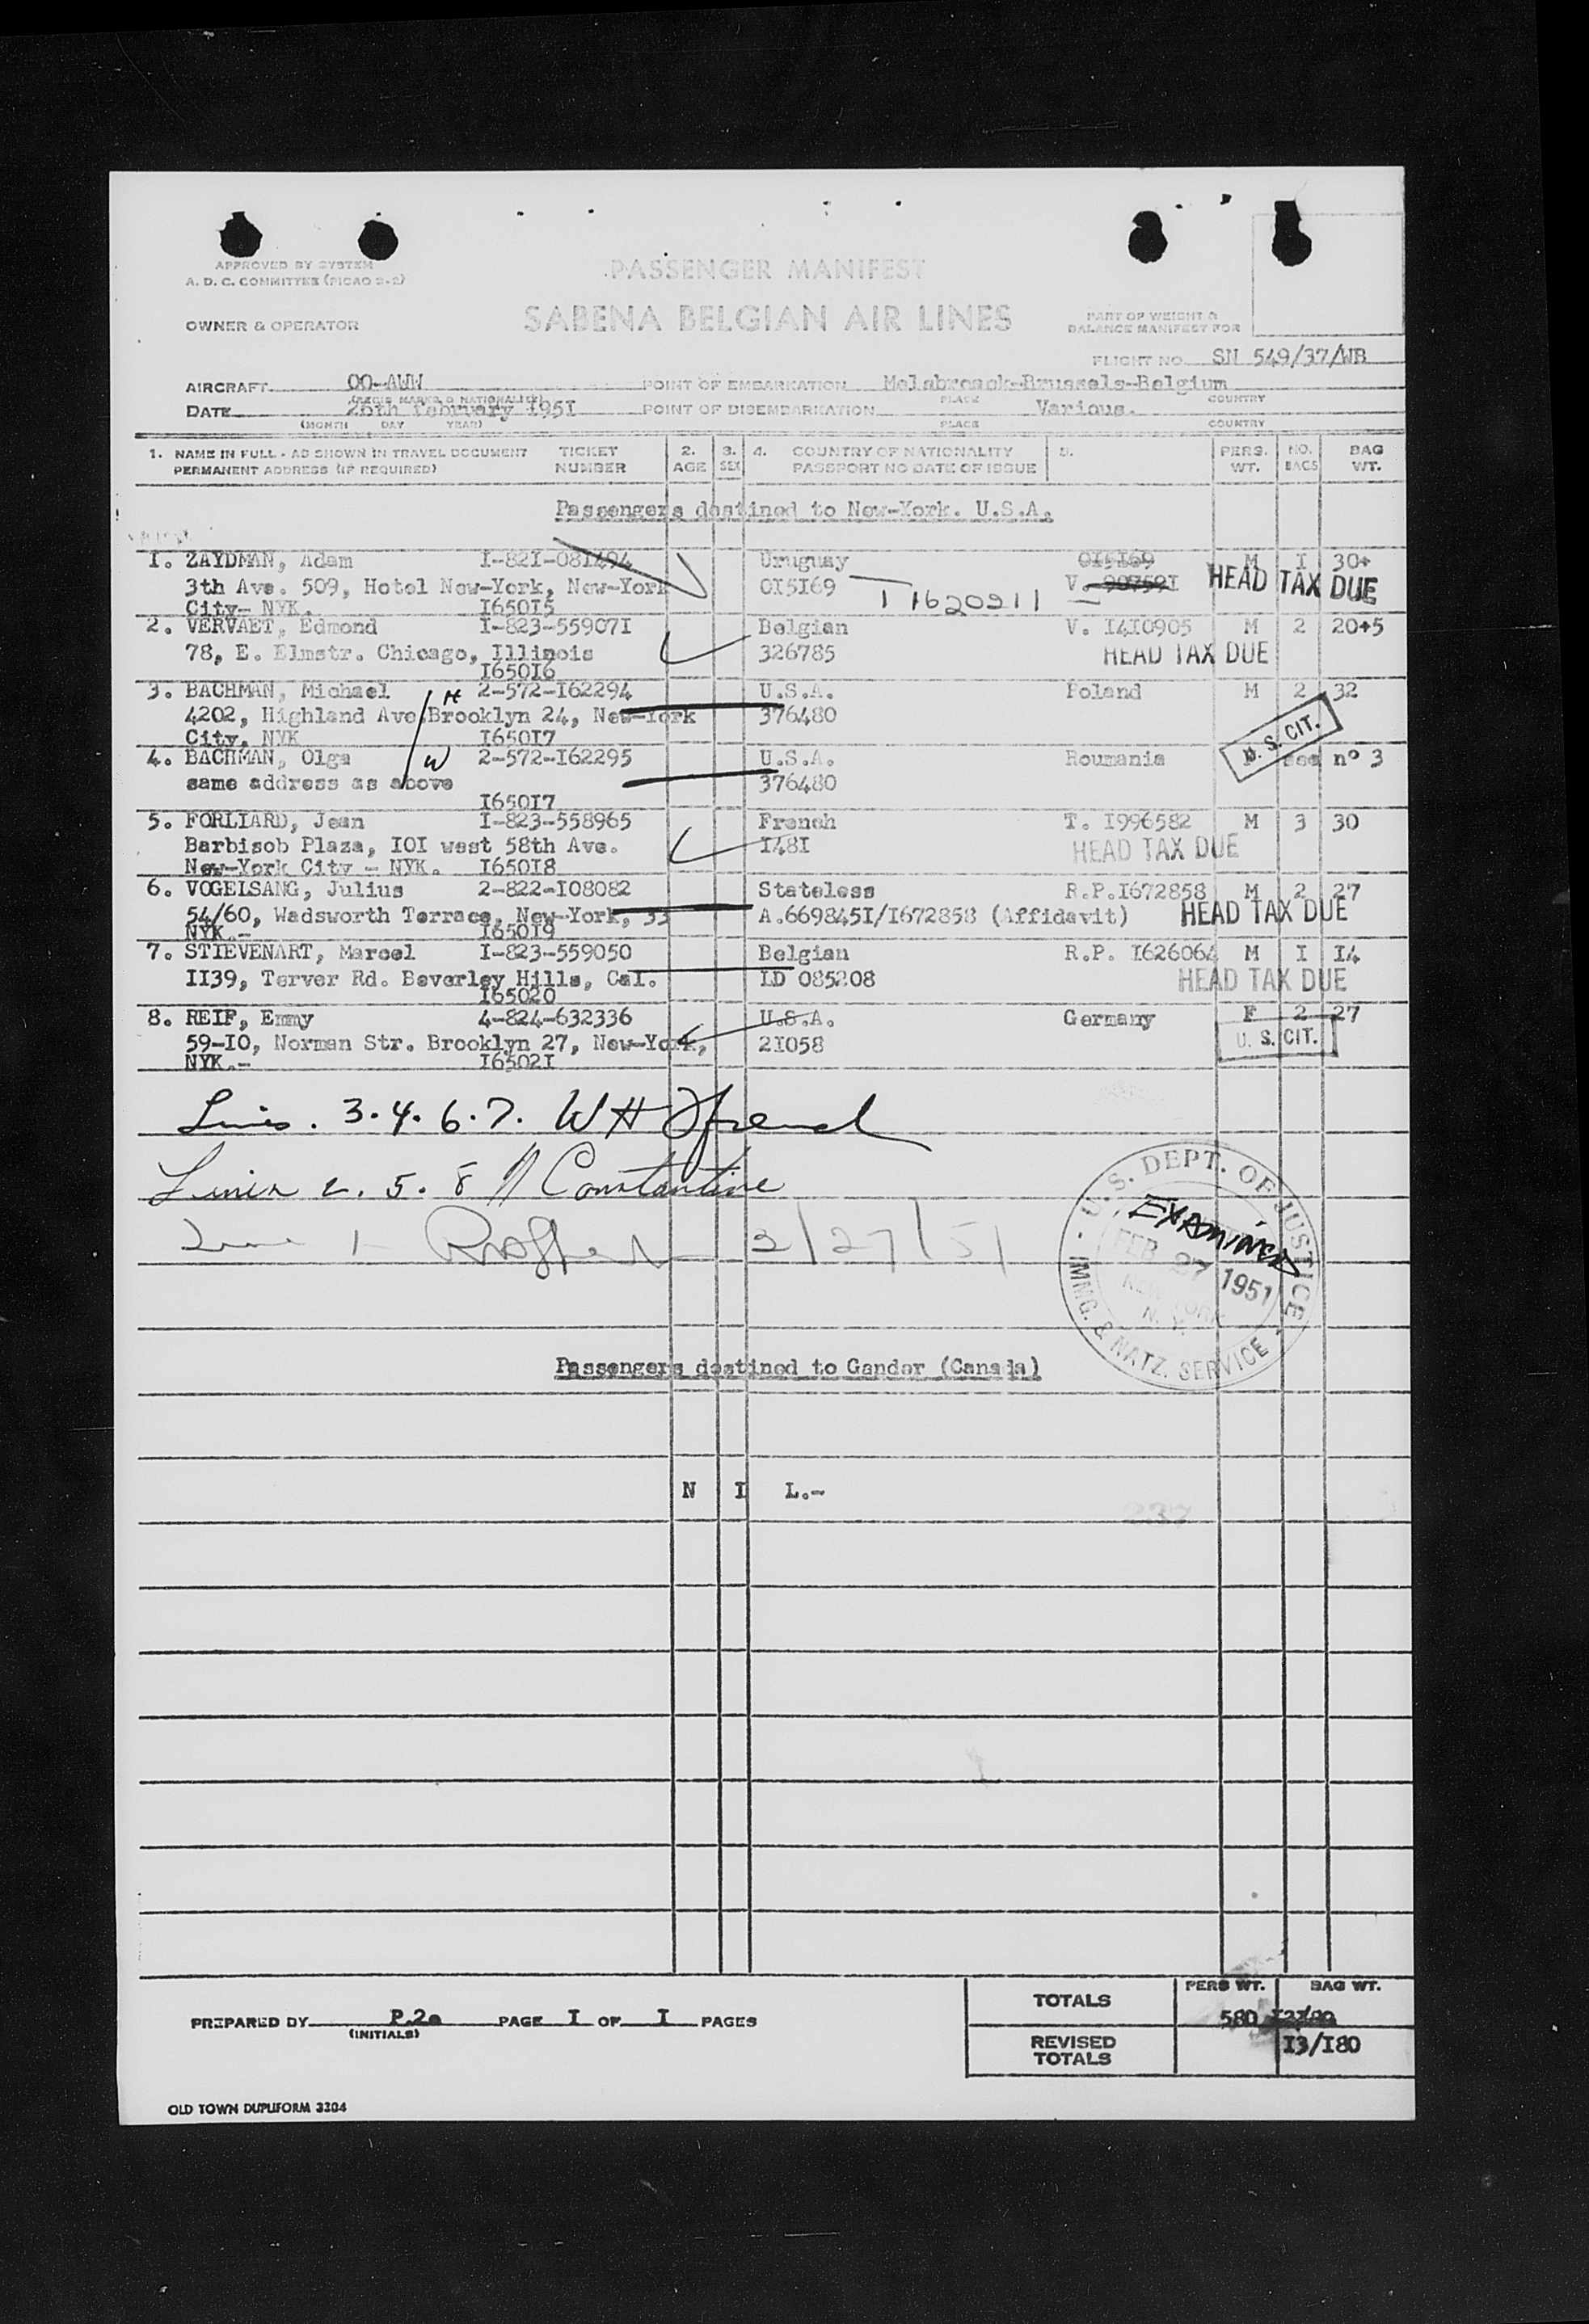 APPROVED BY SYSTEM
A. D. C. COMMITTEE (PICAO 2-2)
PASSENGER MANIFEST
OWNER & OPERATOR
SABENA BELGIAN AIR LINES
PART OF WEIGHT &
BALANCE MANIFEST FOR
FLIGHT NO. SN 549/37/WB
AIRCRAFT OO-AWW POINT OF EMBARKATION Melsbroeck-Brussels-Belgium
(REGIS MARKS & NATIONALITY) PLACE COUNTRY
DATE 26th february 195I POINT OF DISEMBARKATION Various.
(MONTH DAY YEAR) PLACE COUNTRY
1. NAME IN FULL - AS SHOWN IN TRAVEL DOCUMENT TICKET 2. 3. 4. COUNTRY OF NATIONALITY 5. PERS. NO. BAG
PERMANENT ADDRESS (IF REQUIRED) NUMBER AGE SEX PASSPORT NO DATE OF ISSUE WT. BAGS WT.
Passengers destined to New-York. U.S.A.
I. ZAYDMAN, Adam I-82I-08I494 Uruguay OI5I69 M I 30+
3th Ave. 509, Hotel New-York, New-York OI5I69 T 1620911 V. 90759I HEAD TAX DUE
City- NYK. I650I5
2. VERVAET, Edmond I-823-55907I Belgian V. I4I0905 M 2 20+5
78, E. Elmstr. Chicago, Illinois 326785 HEAD TAX DUE
I650I6
3. BACHMAN, Michael H 2-572-I62294 U.S.A. Poland M 2 32
4202, Highland Ave.Brooklyn 24, New-York 376480
City. NYK I650I7 U. S. CIT.
4. BACHMAN, Olga W 2-572-I62295 U.S.A. Roumania F see n° 3
same address as above 376480
I650I7
5. FORLIARD, Jean I-823-558965 French T. I996582 M 3 30
Barbisob Plaza, IOI west 58th Ave. I48I HEAD TAX DUE
New-York City - NYK. I650I8
6. VOGELSANG, Julius 2-822-I08082 Stateless R.P.I672858 M 2 27
54/60, Wadsworth Terrace, New-York, 33 A.669845I/I672858 (Affidavit) HEAD TAX DUE
NYK.- I650I9
7. STIEVENART, Marcel I-823-559050 Belgian R.P. I626064 M I I4
II39, Terver Rd. Beverley Hills, Cal. LD 085208 HEAD TAX DUE
I65020
8. REIF, Emmy 4-824-632336 U.S.A. Germany F 2 27
59-I0, Norman Str. Brooklyn 27, New-York, 2I058 U. S. CIT.
NYK.- I6502I
Lines. 3.4.6.7. WH
Lines 2. 5. 8 Constantine
Line 1 2/27/51
U. S. DEPT. OF JUSTICE
EXAMINED
FEB 27 1951
NEW YORK
N. Y.
IMMG. & NATZ. SERVICE
Passengers destined to Gander (Canada)
N I L.-
237
PREPARED BY P.2. PAGE I OF I PAGES
(INITIALS)
TOTALS PERS WT. BAG WT.
580
REVISED TOTALS I3/I80
OLD TOWN DUPLIFORM 3204